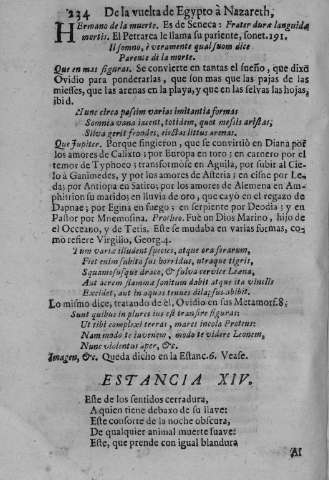 234 De la vuelta de Egypto à Nazareth,
HErmano de la muerte. Es de Seneca: Frater duræ languida
mortis. El Petrarca le llama su pariente, sonet. 191.
Il sonno, è veramente qual suom dice
Parente di la morte.
Que en mas figuras. Se convierte en tantas el sueño, que dixo
Ovidio para ponderarlas, que son mas que las pajas de las
miesses, que las arenas en la playa, y que en las selvas las hojas,
ibid.
Hunc circa passim varias imitantia formas
Somnia vana iacent, totidem, quot messis aristas,
Silva gerit frondes, eiectas littus arenas.
Que Jupiter. Porque fingieron, que se convirtiò en Diana por
los amores de Calixto; por Europa en toro; en carnero por el
temor de Typhoeo; transformòle en Aguila, por subir al Cie-
lo à Ganimedes, y por los amores de Asteria; en cisne por Le-
da; por Antiopa en Satiro; por los amores de Alemena en Am-
phitrion su marido; en lluvia de oro, que cayò en el regazo de
Dapnae; por Egina en fuego: en serpiente por Deodia; y en
Pastor por Mnemosina. Protheo. Fuè on Dios Marino, hijo de
el Occeano, y de Tetis. Este se mudaba en varias formas, co-
mo refiere Virgilio, Georg. 4.
Tum variæ illudent species, atque ora ferarum,
Fiet enim subita sus horridus, utraque tigris,
Squamosusque draco, & fulva cervice Leæna,
Aut acrem flammæ sonitum dabit atque ita vinclis
Excidet, aut in aquas tenues dilapsus abibit.
Lo mismo dice, tratando de èl, Ovidio en sus Metamorf. 8.
Sunt quibus in plures ius est transire figuras:
Ut tibi complexi terras, maris incola Proteus:
Nam modo te iuvenem, modo te videre Leonem,
Nunc violentus aper, &c.
Imagen, &c. Queda dicho en la Estanc. 6. Vease.
ESTANCIA XIV.
Este de los sentidos cerradura,
A quien tiene debaxo de su llave:
Este consorte de la noche obscura,
De qualquier animal muerte suave:
Este, que prende con igual blandura
Al